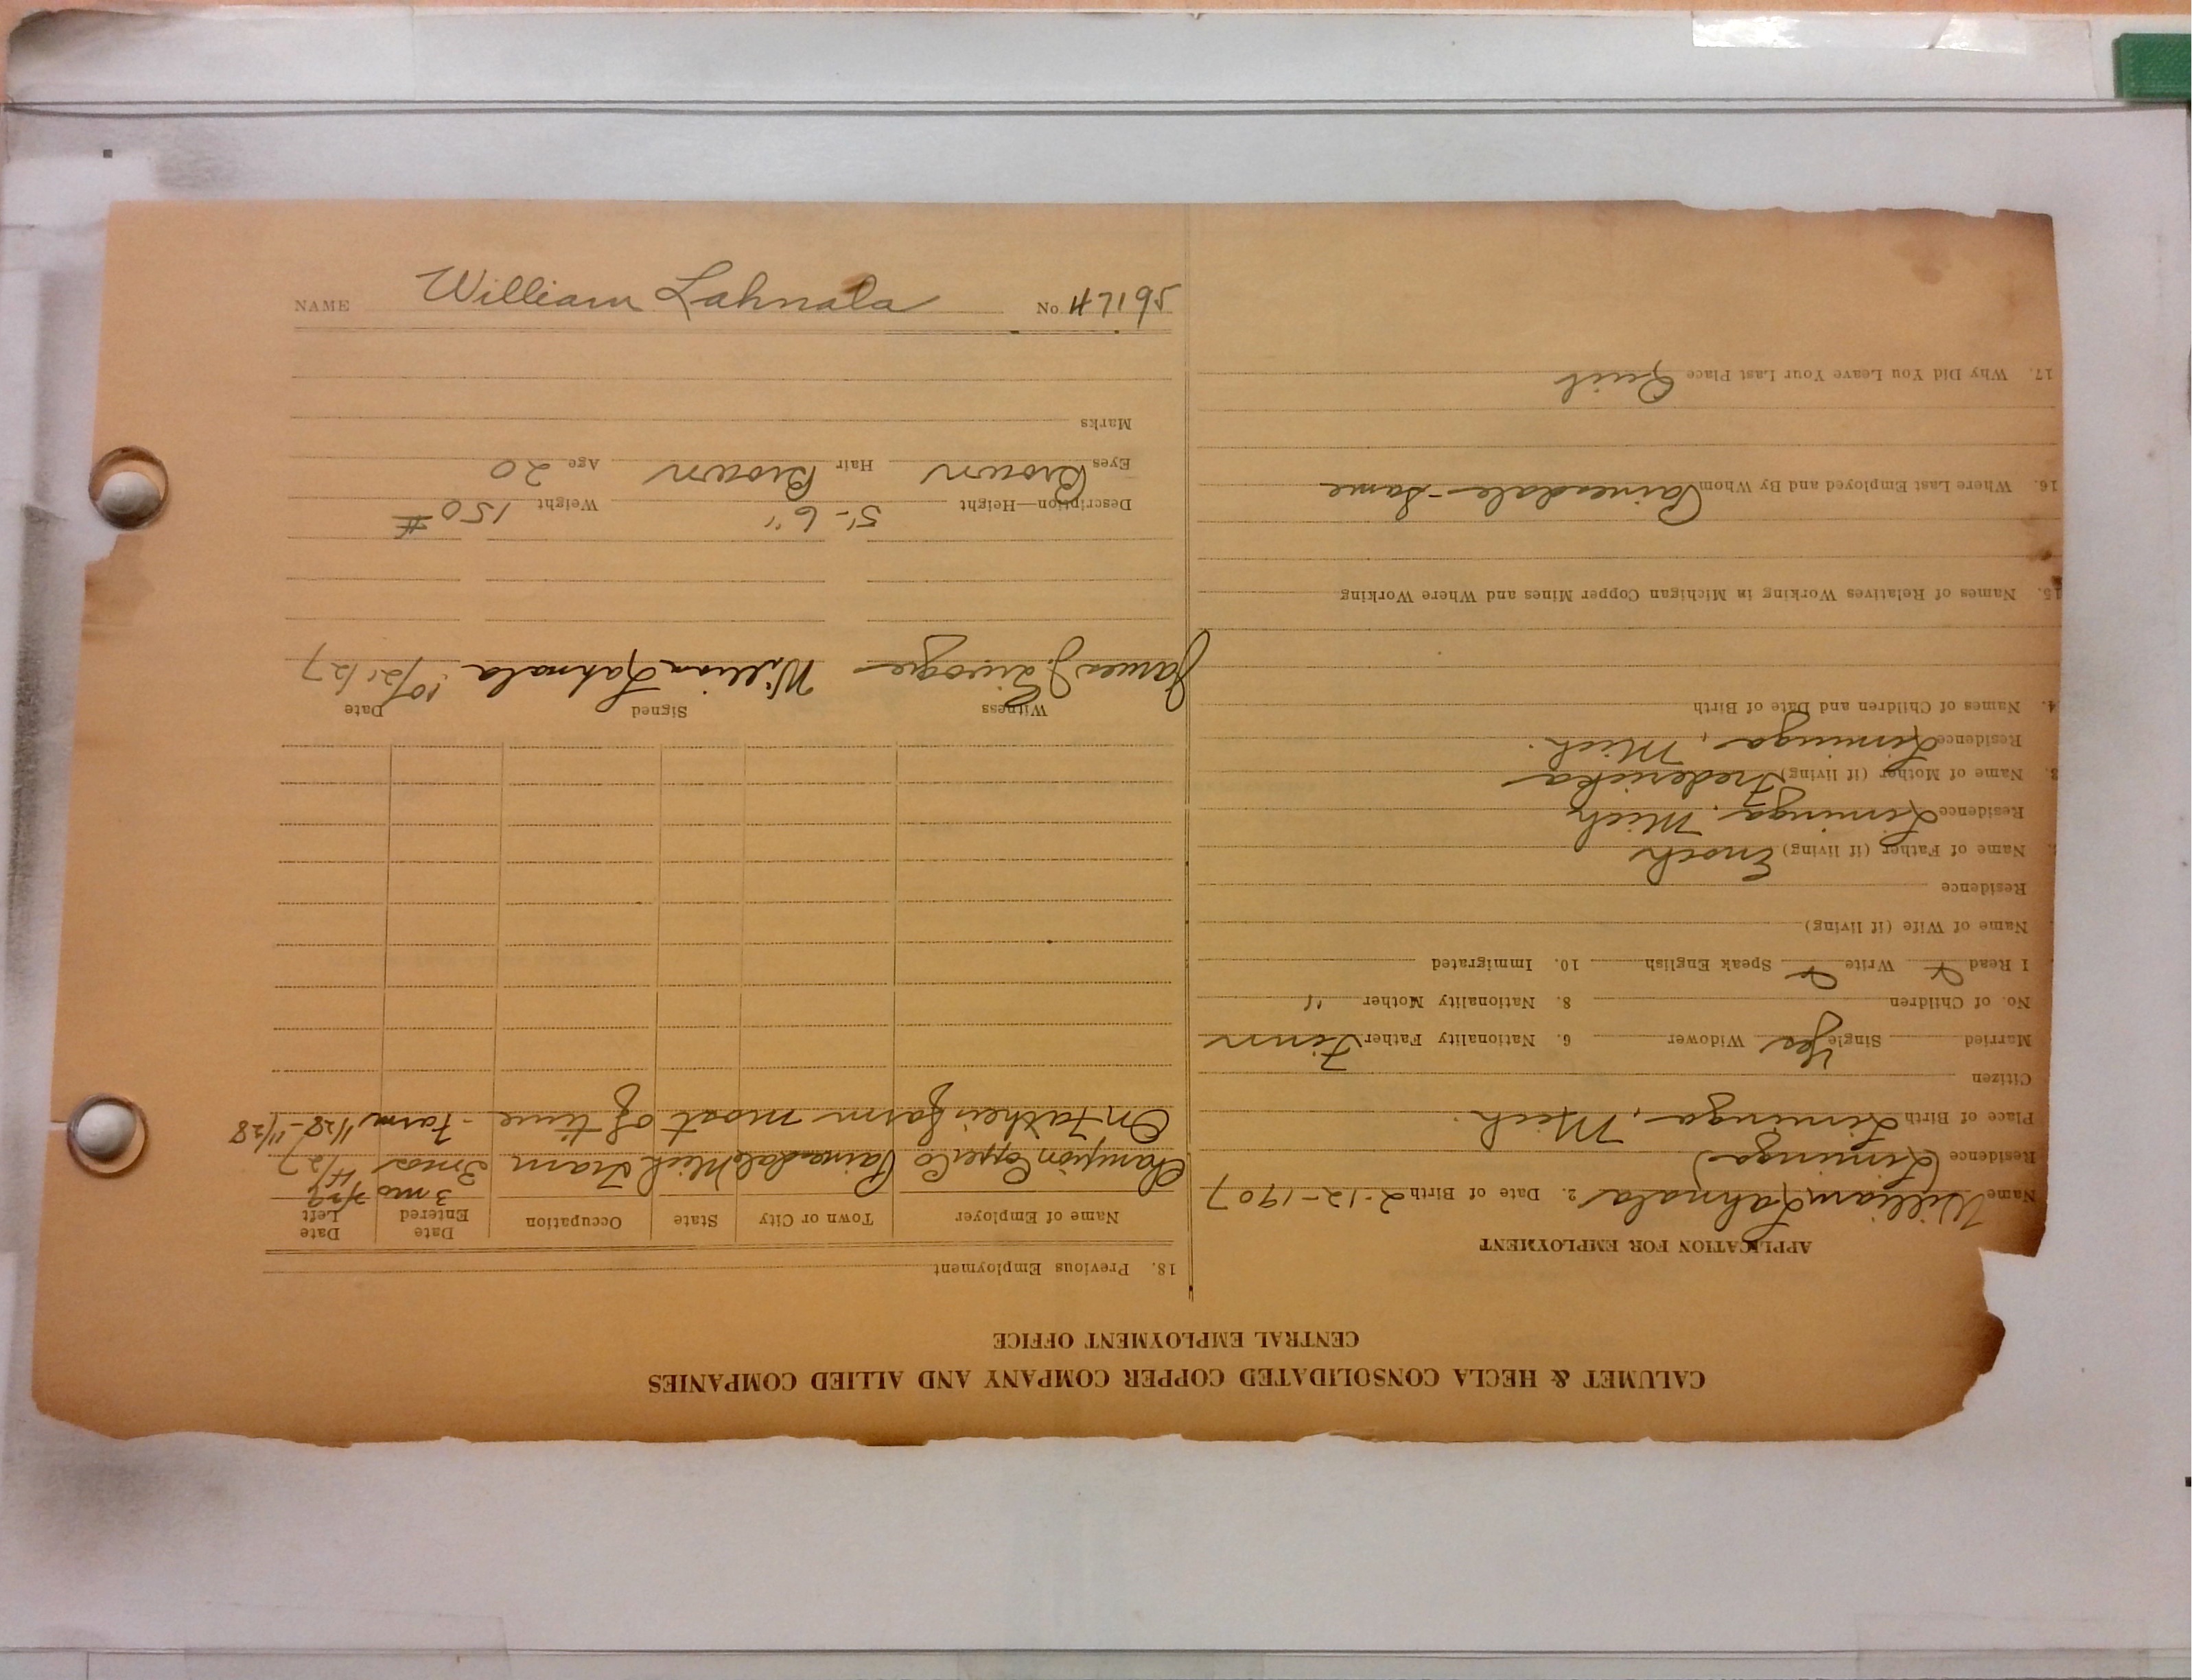 CALUMET & HECLA CONSOLIDATED COPPER COMPANY AND ALLIED COMPANIES
CENTRAL EMPLOYMENT OFFICE
APPLICATION FOR EMPLOYMENT
Name William Lahnala 2. Date of Birth 2-12-1907
Residence (Liminga)
Place of Birth Liminga, Mich.
Citizen
Married Single Yes Widower 6. Nationality Father Finn
No. of Children 8. Nationality Mother "
I Read Write Speak English 10. Immigrated
Name of Wife (if living)
Residence
Name of Father (if living) Enoch
Residence Liminga, Mich
3. Name of Mother (if living) Fredericka
Residence Liminga, Mich.
4. Names of Children and Date of Birth
15. Names of Relatives Working in Michigan Copper Mines and Where Working
16. Where Last Employed and By Whom Painesdale - Same
17. Why Did You Leave Your Last Place Quit
18. Previous Employment
Name of Employer Town or City State Occupation Date Entered Date Left
3 mo
Champion Copper Co Painesdale Mich Tram 3 mos 4/27
On Fathers farm most of time - Farm 1/28 - 11/28
Witness Signed Date
James J. William Lahnala 10/21/27
Description—Height 5'-6" Weight 150 #
Eyes Brown Hair Brown Age 20
Marks
NAME William Lahnala No 47195